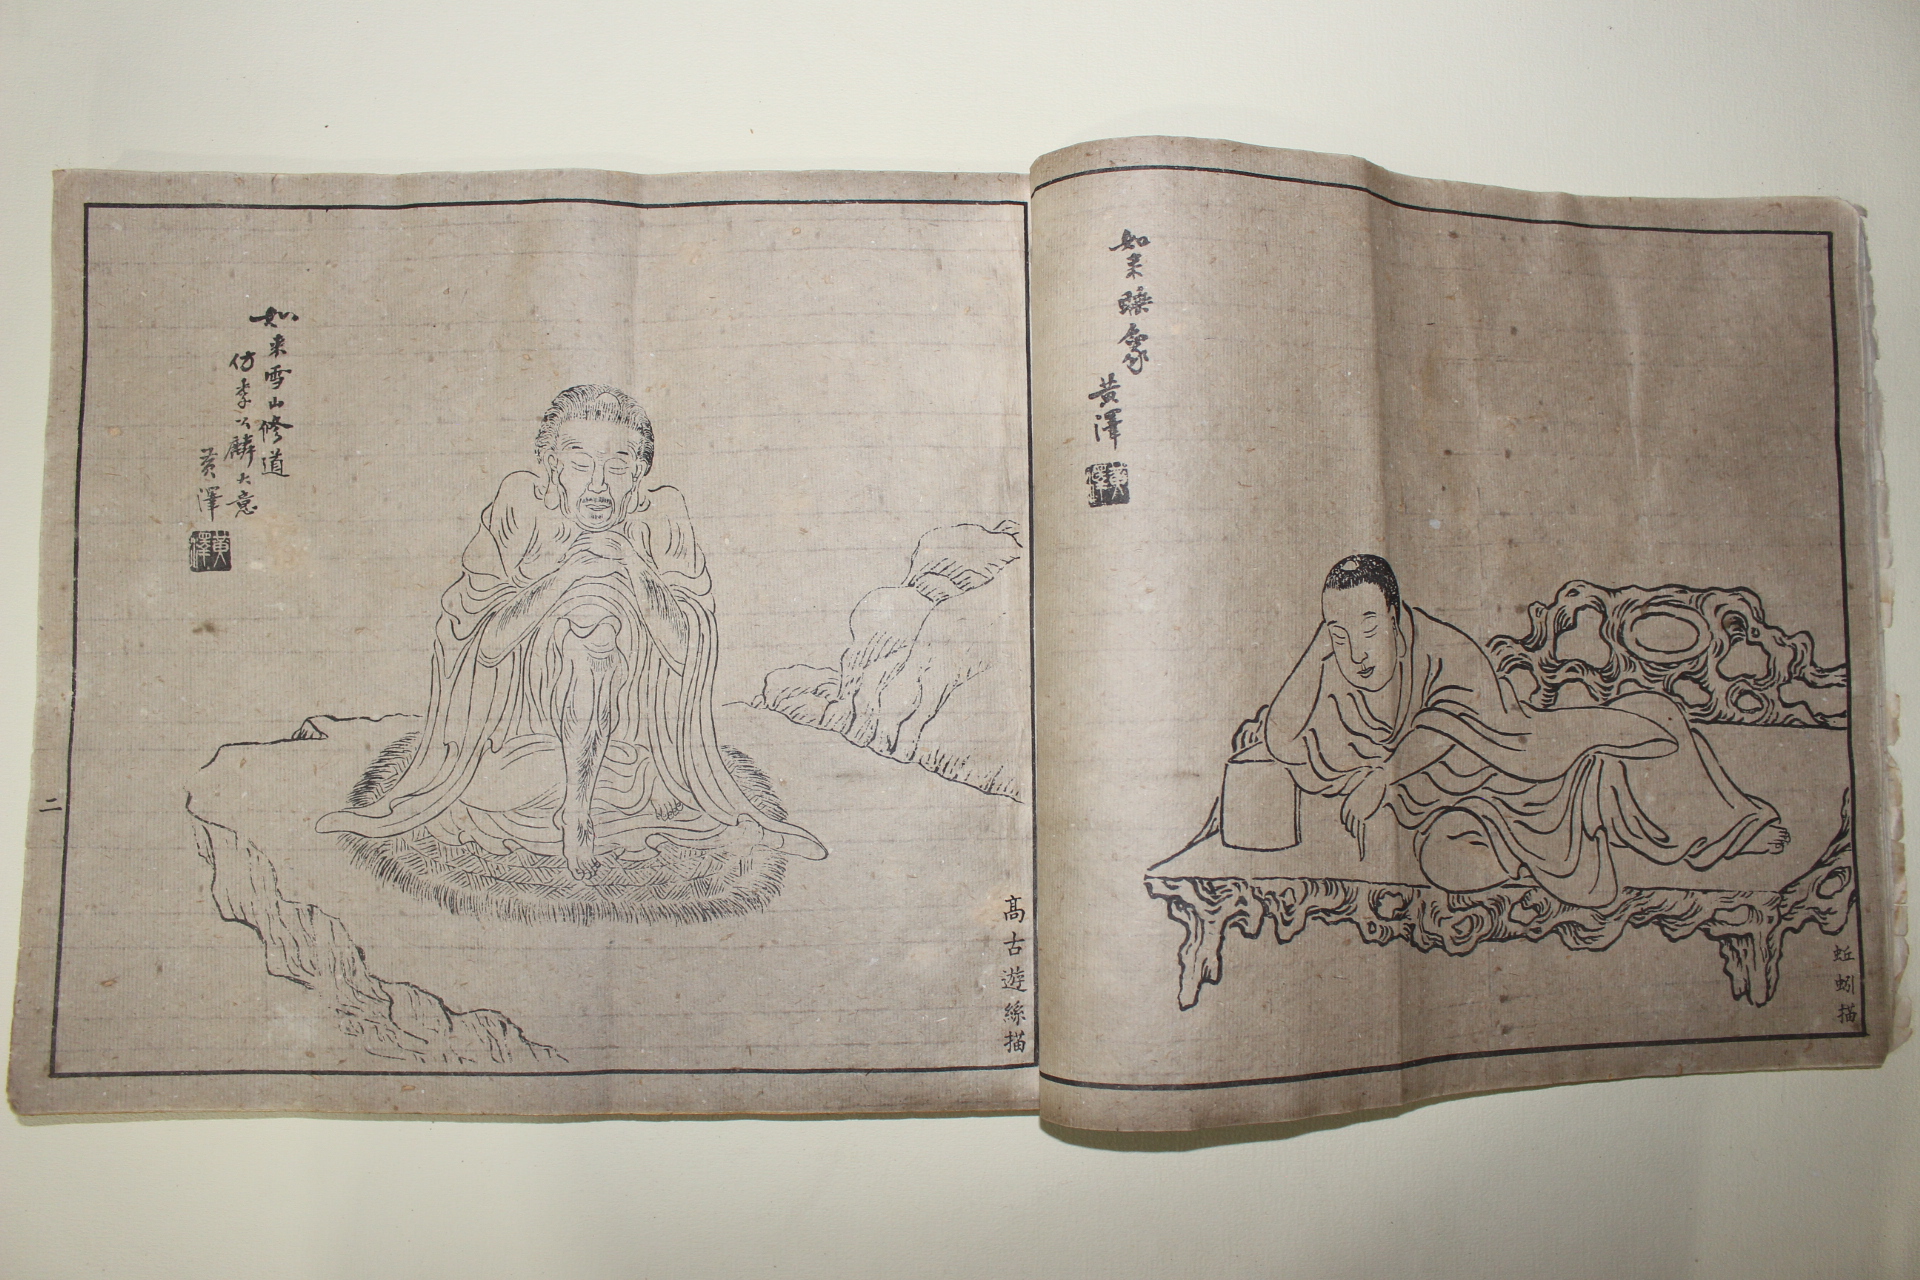 如来睡象
黄澤
黄澤
蚯蚓描
如来雪山修道
仿李公麟大意
黄澤
黄澤
高古遊絲描
二